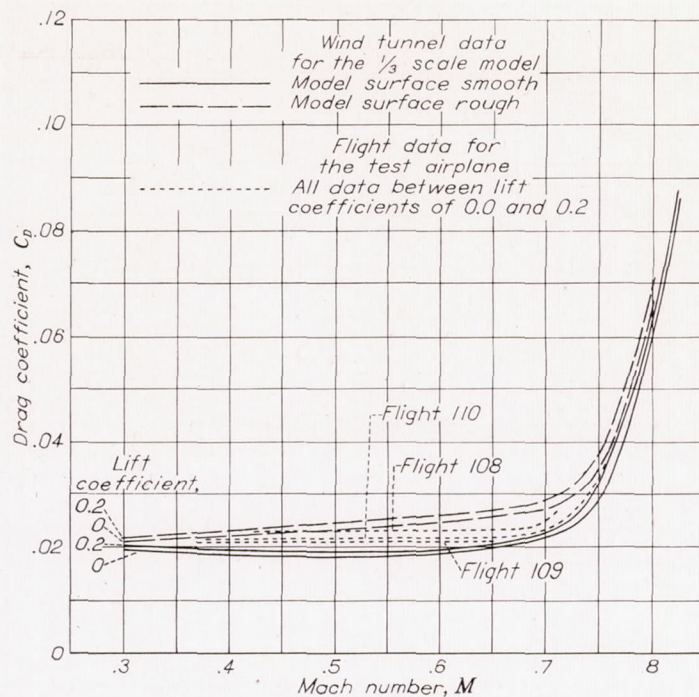 .12
.10
.08
.06
.04
.02
0
Drag coefficient, C_D
Wind tunnel data
for the ⅓ scale model
Model surface smooth
Model surface rough
Flight data for
the test airplane
All data between lift
coefficients of 0.0 and 0.2
Flight 110
Flight 108
Flight 109
Lift
coefficient,
0.2
0
0.2
0
.3 .4 .5 .6 .7 .8
Mach number, M